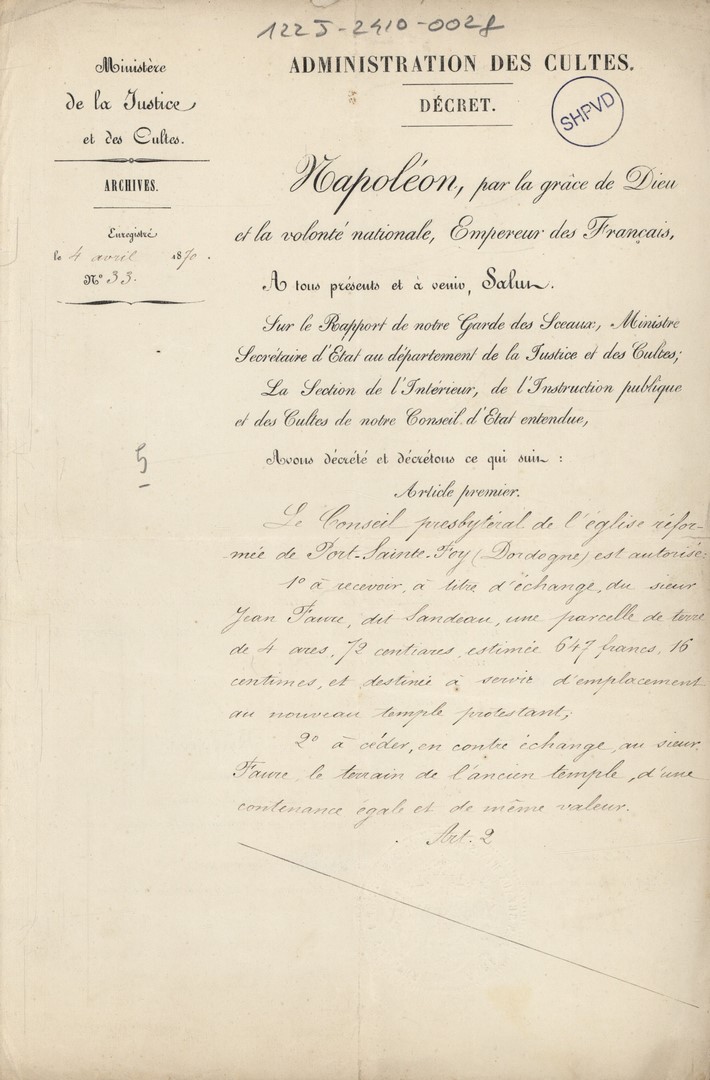 122J-2410-0028
Ministère
de la Justice
et des Cultes.
ARCHIVES.
Enregistré
le 4 avril 1870.
N° 33.
5
ADMINISTRATION DES CULTES.
DÉCRET.
SHPVD
Napoléon, par la grâce de Dieu
et la volonté nationale, Empereur des Français,
A tous présents et à venir, Salut.
Sur le Rapport de notre Garde des Sceaux, Ministre
Secrétaire d'Etat au département de la Justice et des Cultes;
La Section de l'Intérieur, de l'Instruction publique
et des Cultes de notre Conseil d'Etat entendue,
Avons décrété et décrétons ce qui suit :
Article premier.
Le Conseil presbytéral de l'église réfor-
mée de Port-Sainte-Foy (Dordogne) est autorisé:
1° à recevoir, à titre d'échange, du sieur
Jean Faure, dit Sandeau, une parcelle de terre
de 4 ares, 72 centiares, estimée 647 francs, 16
centimes, et destinée à servir d'emplacement
au nouveau temple protestant;
2° à céder, en contre échange, au sieur
Faure, le terrain de l'ancien temple, d'une
contenance égale et de même valeur.
Art. 2